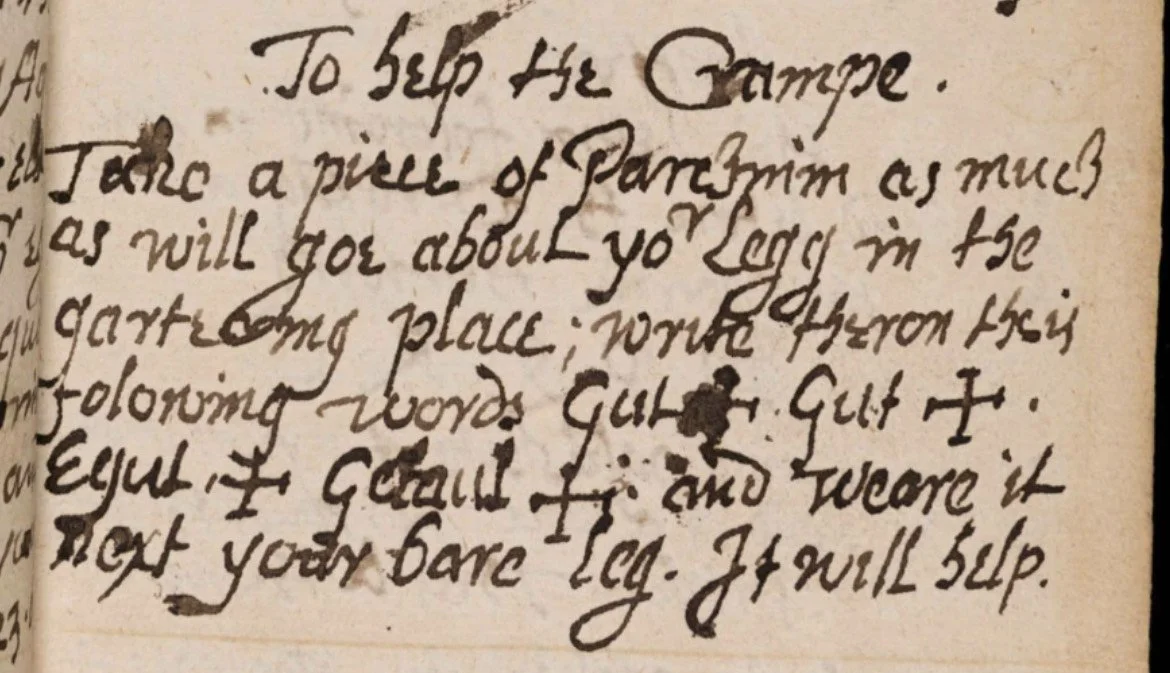 To help the Crampe.
Take a piece of Parchmim as much
as will goe about yoʳ Legg in the
gartering place; write theron theis
folowing words Gut ✝. Gut ✝.
Egut. ✝ Getaul ✝; and weare it
next your bare leg. It will help.